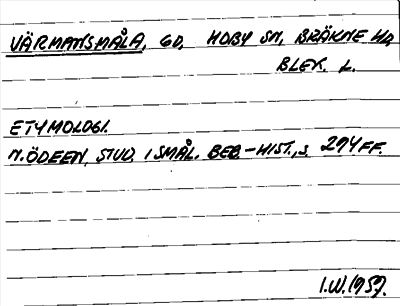 VÄRMANSMÅLA, GD, HOBY SN, BRÄKNE HD,
BLEK. L.
ETYMOLOGI.
N. ÖDEEN, STUD. I SMÅL. BEB.-HIST., S. 294 FF.
I.W. 1957.